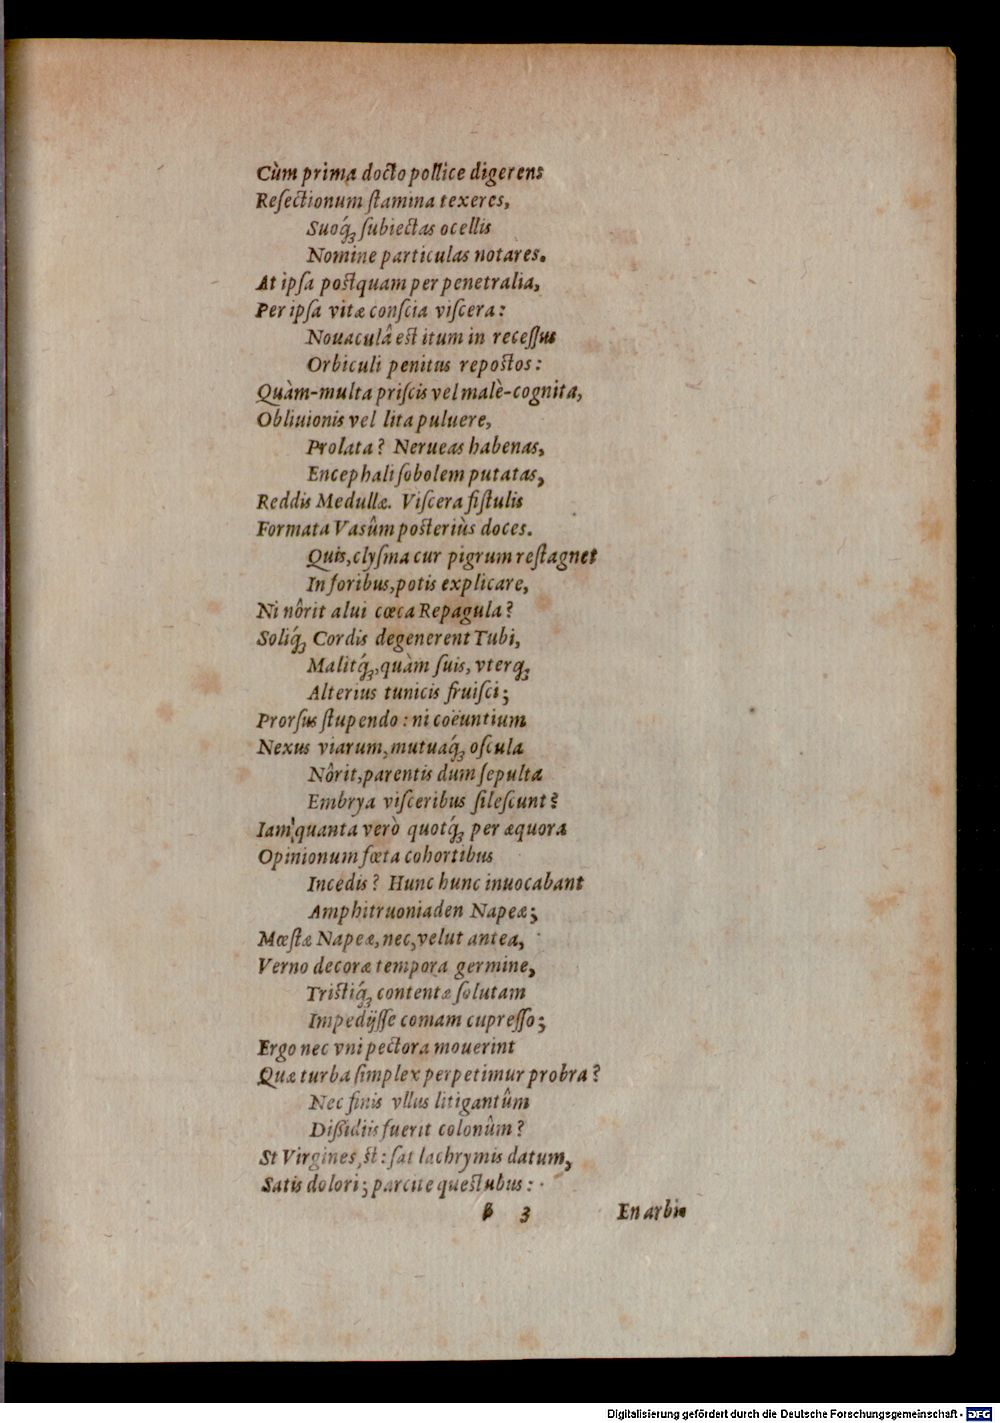 Cùm prima docto pollice digerens
Reſectionum ſtamina texeres,
Suoq́ꝫ ſubiectas ocellis
Nomine particulas notares.
At ipſa postquam per penetralia,
Per ipſa vitæ conſcia viſcera:
Nouaculâ est itum in receſſus
Orbiculi penitus repostos:
Quàm-multa priſcis vel malè-cognita,
Obliuionis vel lita puluere,
Prolata? Nerueas habenas,
Encephali ſobolem putatas,
Reddis Medullæ. Viſcera fiſtulis
Formata Vasûm posteriùs doces.
Quis, clyſma cur pigrum reſtagnet
In foribus, potis explicare,
Ni nôrit alui cœca Repagula?
Soliq́ꝫ Cordis degenerent Tubi,
Malitq́ꝫ, quàm ſuis, vterqꝫ
Alterius tunicis fruiſci;
Prorſus ſtupendo: ni coëuntium
Nexus viarum, mutuaq́ꝫ oſcula
Nôrit, parentis dum ſepulta
Embrya viſceribus ſileſcunt?
Iam quanta verò quotq́ꝫ per æquora
Opinionum fœta cohortibus
Incedis? Hunc hunc inuocabant
Amphitruoniaden Napeæ;
Mœſtæ Napeæ, nec, velut antea,
Verno decoræ tempora germine,
Tristiq́ꝫ contentæ ſolutam
Impedijſſe comam cupreſſo;
Ergo nec vni pectora mouerint
Quæ turba ſimplex perpetimur probra?
Nec finis vllus litigantûm
Dißidiis fuerit colonûm?
St Virgines, st: ſat lachrymis datum,
Satis dolori; parcite questubus:
β 3 En arbi
Digitalisierung gefördert durch die Deutsche Forschungsgemeinschaft - DFG